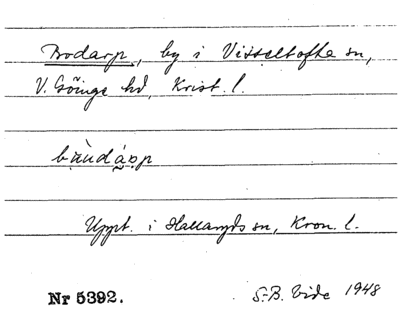 Brodarp, by i Visseltofte sn,
V. Göinge hd, Krist. l.
Uppt. i Hallaryds sn, Kron. l.
Nr 5392.
S.-B. Vide 1948